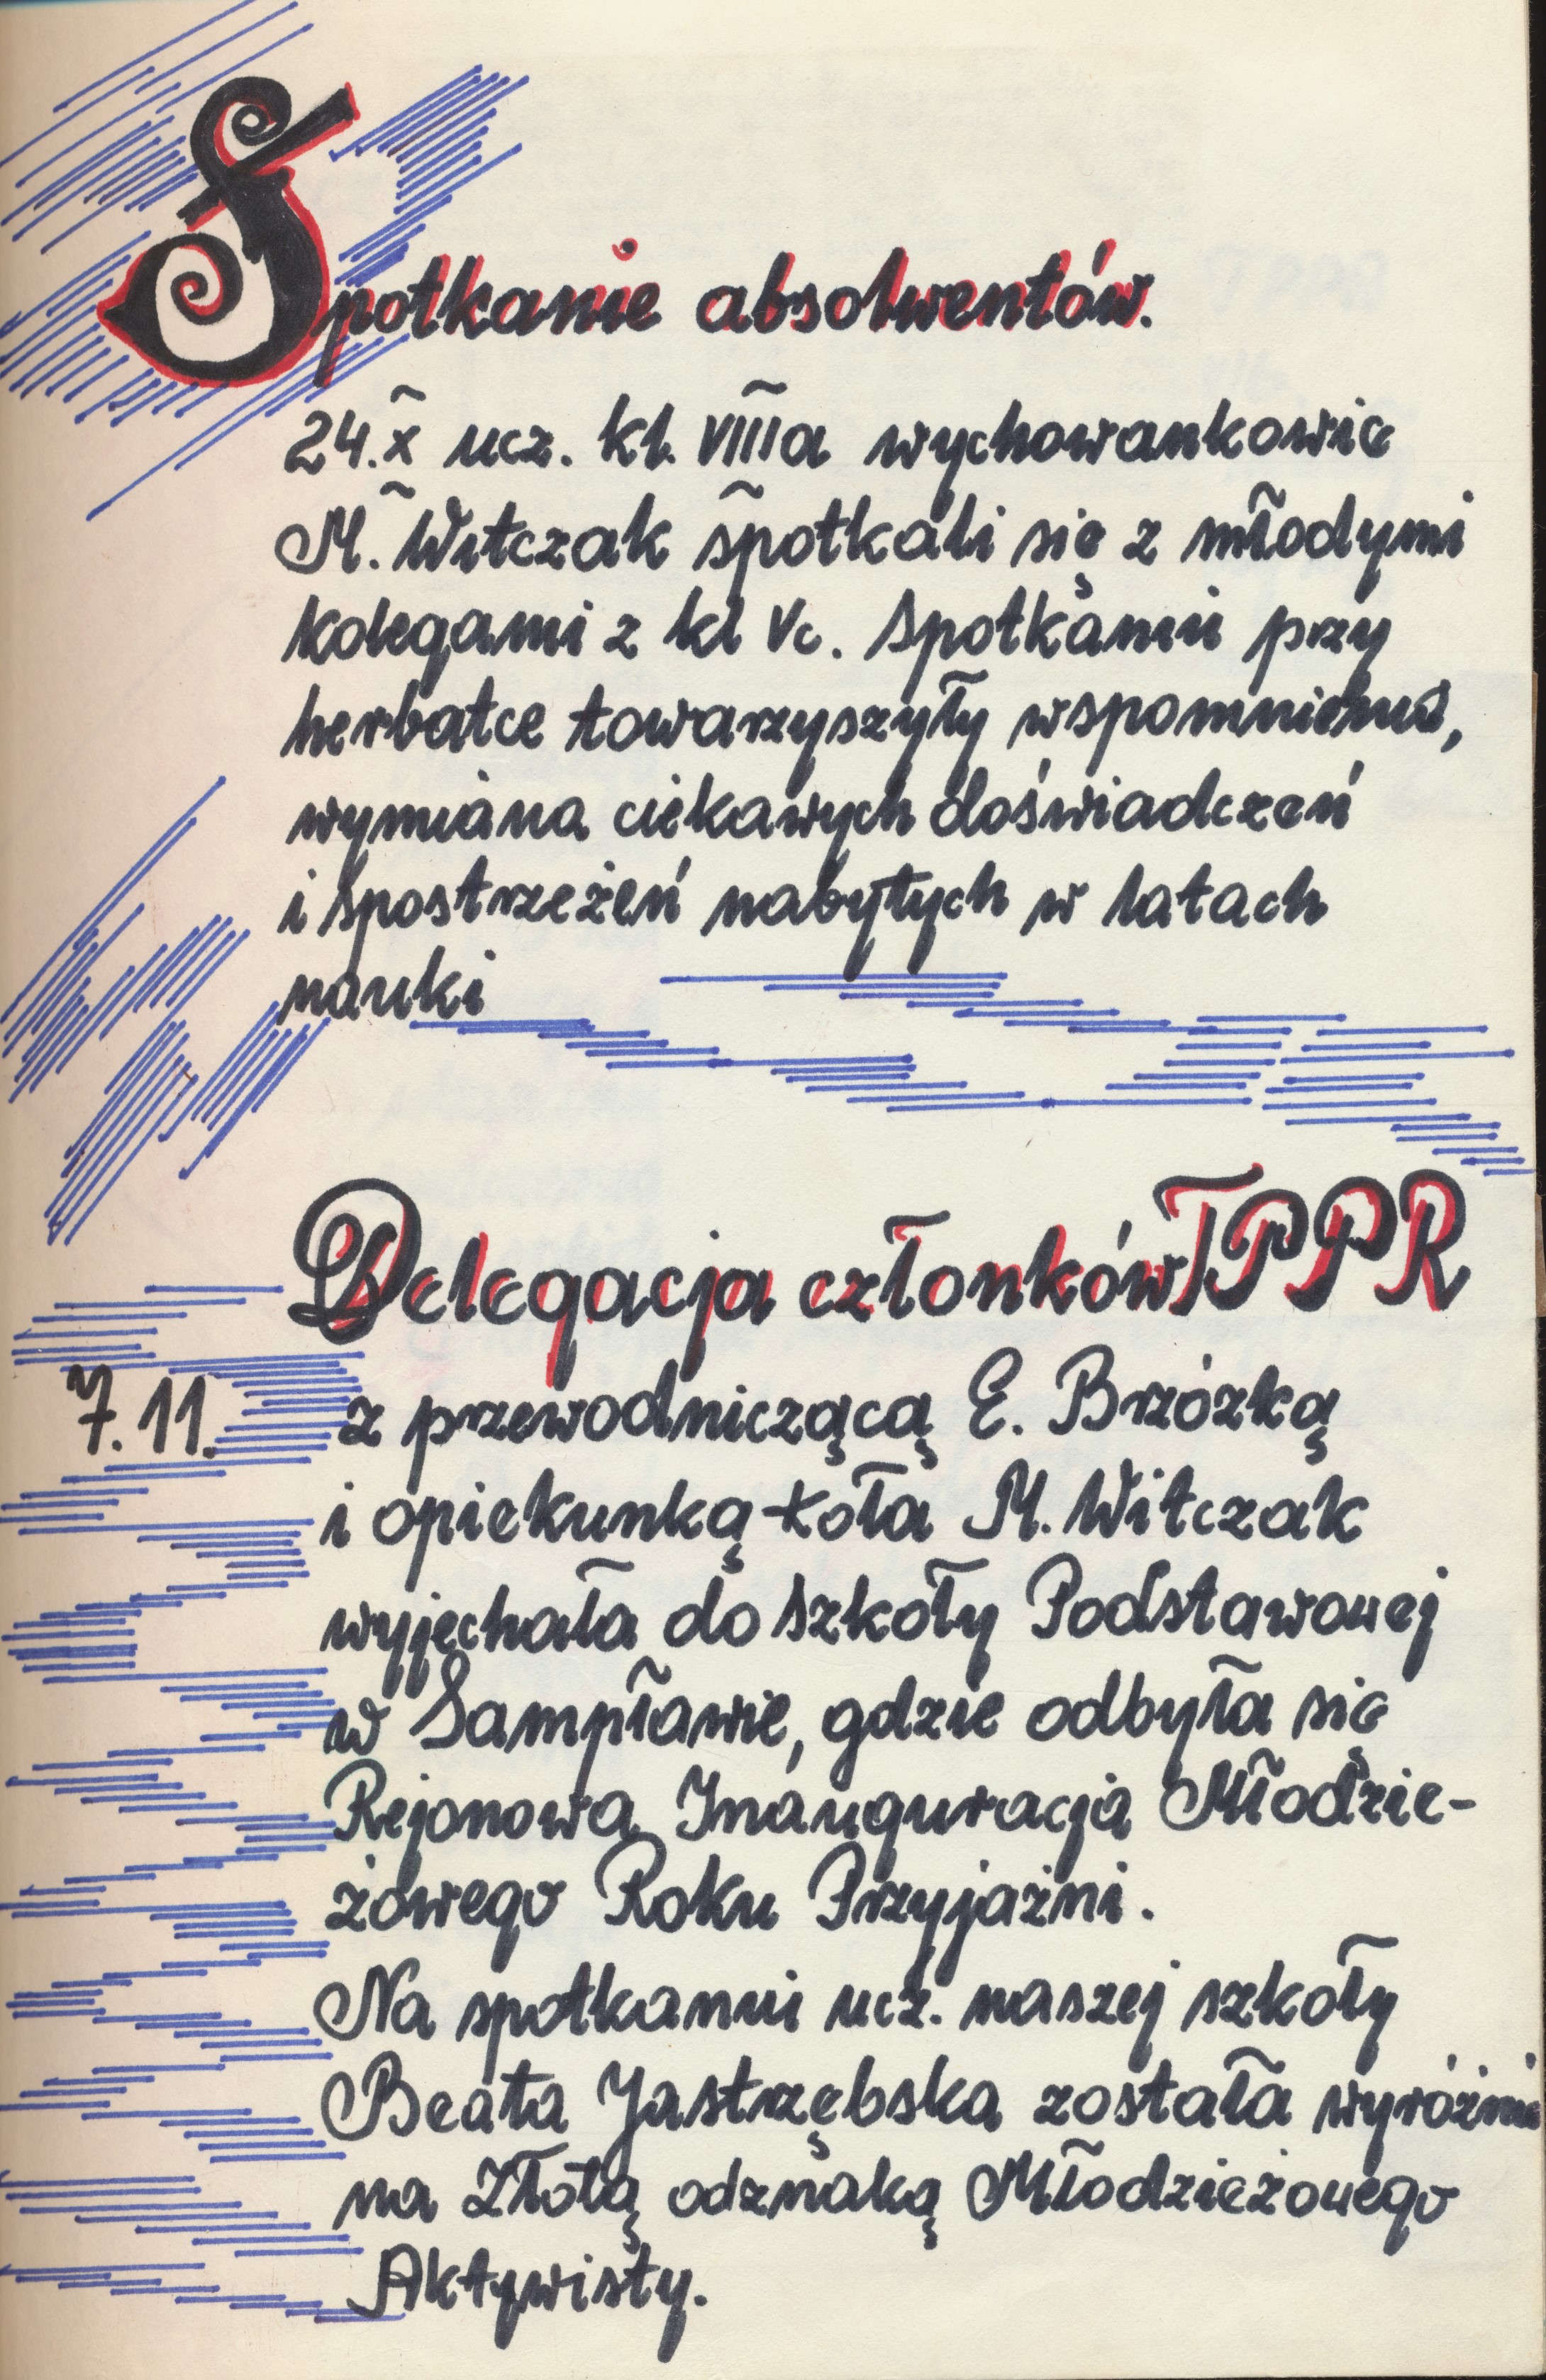 Spotkanie absolwentów.
24.X ucz. kl. VIIIa wychowankowie
M. Witczak spotkali się z młodymi
kolegami z kl Vc. Spotkaniu przy
herbatce towarzyszyły wspomnienia,
wymiana ciekawych doświadczeń
i spostrzeżeń nabytych w latach
nauki
Delegacja członków TPPR
7.11. z przewodniczącą E. Brzózką
i opiekunką koła M. Witczak
wyjechała do Szkoły Podstawowej
w Sampławie, gdzie odbyła się
Rejonowa Inauguracja Młodzie-
żowego Roku Przyjaźni.
Na spotkaniu ucz. naszej szkoły
Beata Jastrzębska została wyróżnio
na Złotą odznaką Młodzieżowego
Aktywisty.